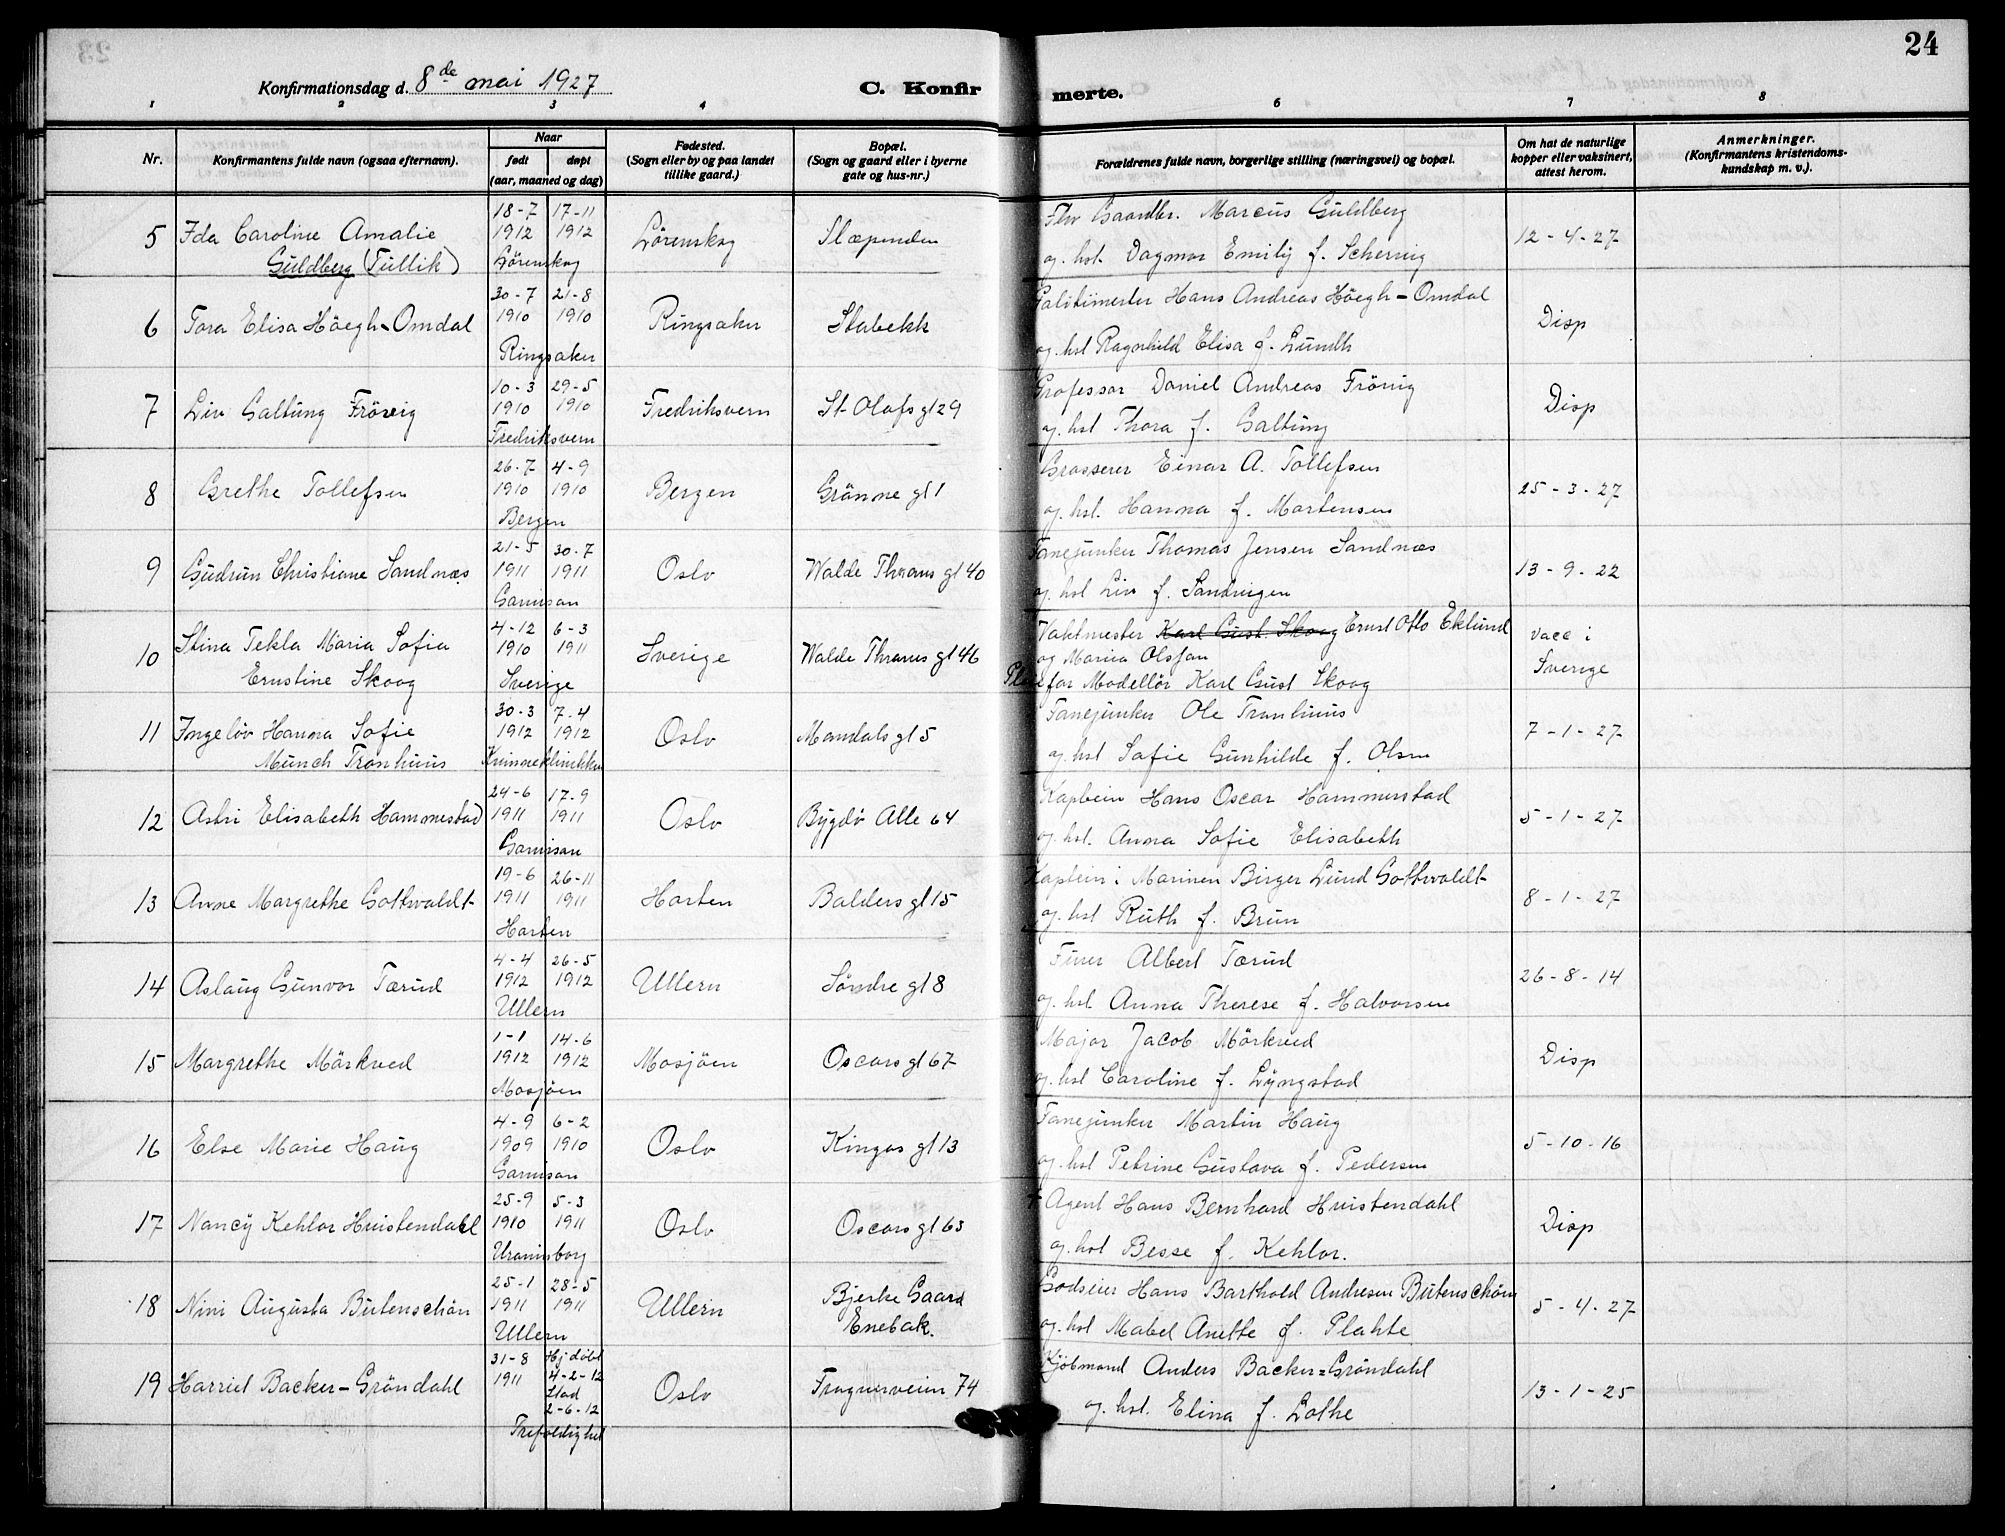 24
Konfirmationsdag d. 8de mai 1927
C. Konfirmerte.
1 2 3 4 6 7 8
Nr.
Konfirmantens fulde navn (ogsaa efternavn).
Naar
født døpt
(aar, maaned og dag)
Fødested.
(Sogn eller by og paa landet
tillike gaard.)
Bopæl.
(Sogn og gaard eller i byerne
gate og hus-nr.)
Forældrenes fulde navn, borgerlige stilling (næringsvei) og bopæl.
Om hat de naturlige
kopper eller vaksinert,
attest herom.
Anmerkninger.
(Konfirmantens kristendoms-
kundskap m. v.).
5 Ida Caroline Amalie
Guldberg (Tullik)
18-7 17-11
1912 1912
Lörenskog
Lörenskog
Slæpenden
Gaardbr. Marcus Guldberg
og. hst. Dagmar Emily f. Schernig
12-4-27
6 Tora Elisa Höegh-Omdal
30-7 21-8
1910 1910
Ringsaker
Ringsaker
Stabekk
Hans Andreas Höegh-Omdal
og. hst Ragnhild Elisa f. Lundh
Disp
7 Liv Galtung Frövig
10-3 29-5
1910 1910
Fredriksvern
Fredriksvern
St. Olafs gt 29
Professor Daniel Andreas Frövig
og. hst Thora f. Galtung
Disp
8 Grethe Tollefsen
26-7 4-9
1910 1910
Bergen
Bergen
Grönne gt 1
Grosserer Einar A. Tollefsen
og. hst. Hanna f. Martensen
25-3-27
9 Gudrun Christiane Sandnæs
21-5 30-7
1911 1911
Garnison
Oslo
Walde Thranes gt 40
Fanejunker Thomas Jensen Sandnæs
og. hst Liv f. Sandvigen
13-9-22
10 Stina Tekla Maria Sofia
Ernstine Skoog
4-12 6-3
1910 1911
Sverige
Sverige
Walde Thranes gt 46
Vaktmester Karl Gust. Skoog Ernst Otto Eklund
og Maria Olsson
Pleiefar Modellör Karl Gust Skoog
vacc i
Sverige
11 Ingelöv Hanna Sofie
Munch Tronhuus
30-3 7-4
1912 1912
Kvinneklinikken
Oslo
Mandals gt 5
Fanejunker Ole Tronhuus
og. hst Sofie Gunhilde f. Olsen
7-1-27
12 Astri Elisabeth Hammestad
24-6 17-9
1911 1911
Garnison
Oslo
Bygdö Alle 64
Kaptein Hans Oscar Hammerstad
og. hst. Anna Sofie Elisabeth
5-1-27
13 Anne Margrethe Gottwaldt
19-6 26-11
1911 1911
Horten
Horten
Balders gt 15
Kaptein i Marinen Birger Lund Gottwaldt
og. hst Ruth f. Brun
8-1-27
14 Aslaug Gunvor Tærud
4-4 26-5
1912 1912
Ullern
Ullern
Söndre gt 8
Albert Tærud
og. hst Anna Therese f. Halvorsen
26-8-14
15 Margrethe Mörkved
1-1 14-6
1912 1912
Mosjöen
Mosjöen
Oscars gt 67
Major Jacob Mörkved
og. hst Caroline f. Lyngstad
Disp
16 Else Marie Haug
4-9 6-2
1909 1910
Garnison
Oslo
Kingos gt 13
Fanejunker Martin Haug
og. hst Petrine Gustava f. Pedersen
5-10-16
17 Nancy Kehlor Huistendahl
25-9 5-3
1910 1911
Uranienborg
Oslo
Oscars gt 63
Agent Hans Bernhard Huistendahl
og. hst Besse f. Kehlor.
Disp
18 Nini Augusta Butenschön
25-1 28-5
1911 1911
Ullern
Ullern
Bjerke Gaard
Enebak.
Godseier Hans Barthold Andresen Butenschön
og. hst Mabel Anette f. Plahte
5-4-27
19 Harriet Backer-Gröndahl
31-8 Hj döbt
1911 4-2-12
Stad
2-6-12
Trefoldighet
Oslo
Frognerveien 74
Kjöbmand Anders Backer=Gröndahl
og. hst. Elina f. Lothe
13-1-25